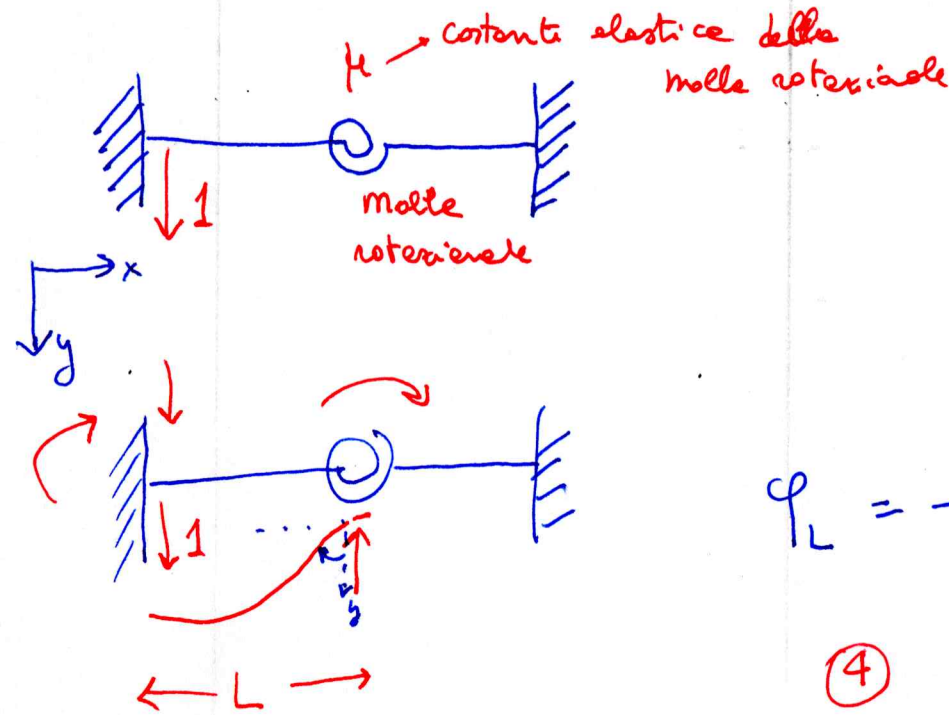 μ → costante elastica della
molla rotazionale
1
molla
rotazionale
x
y
1
y
φ_L = -
L
4